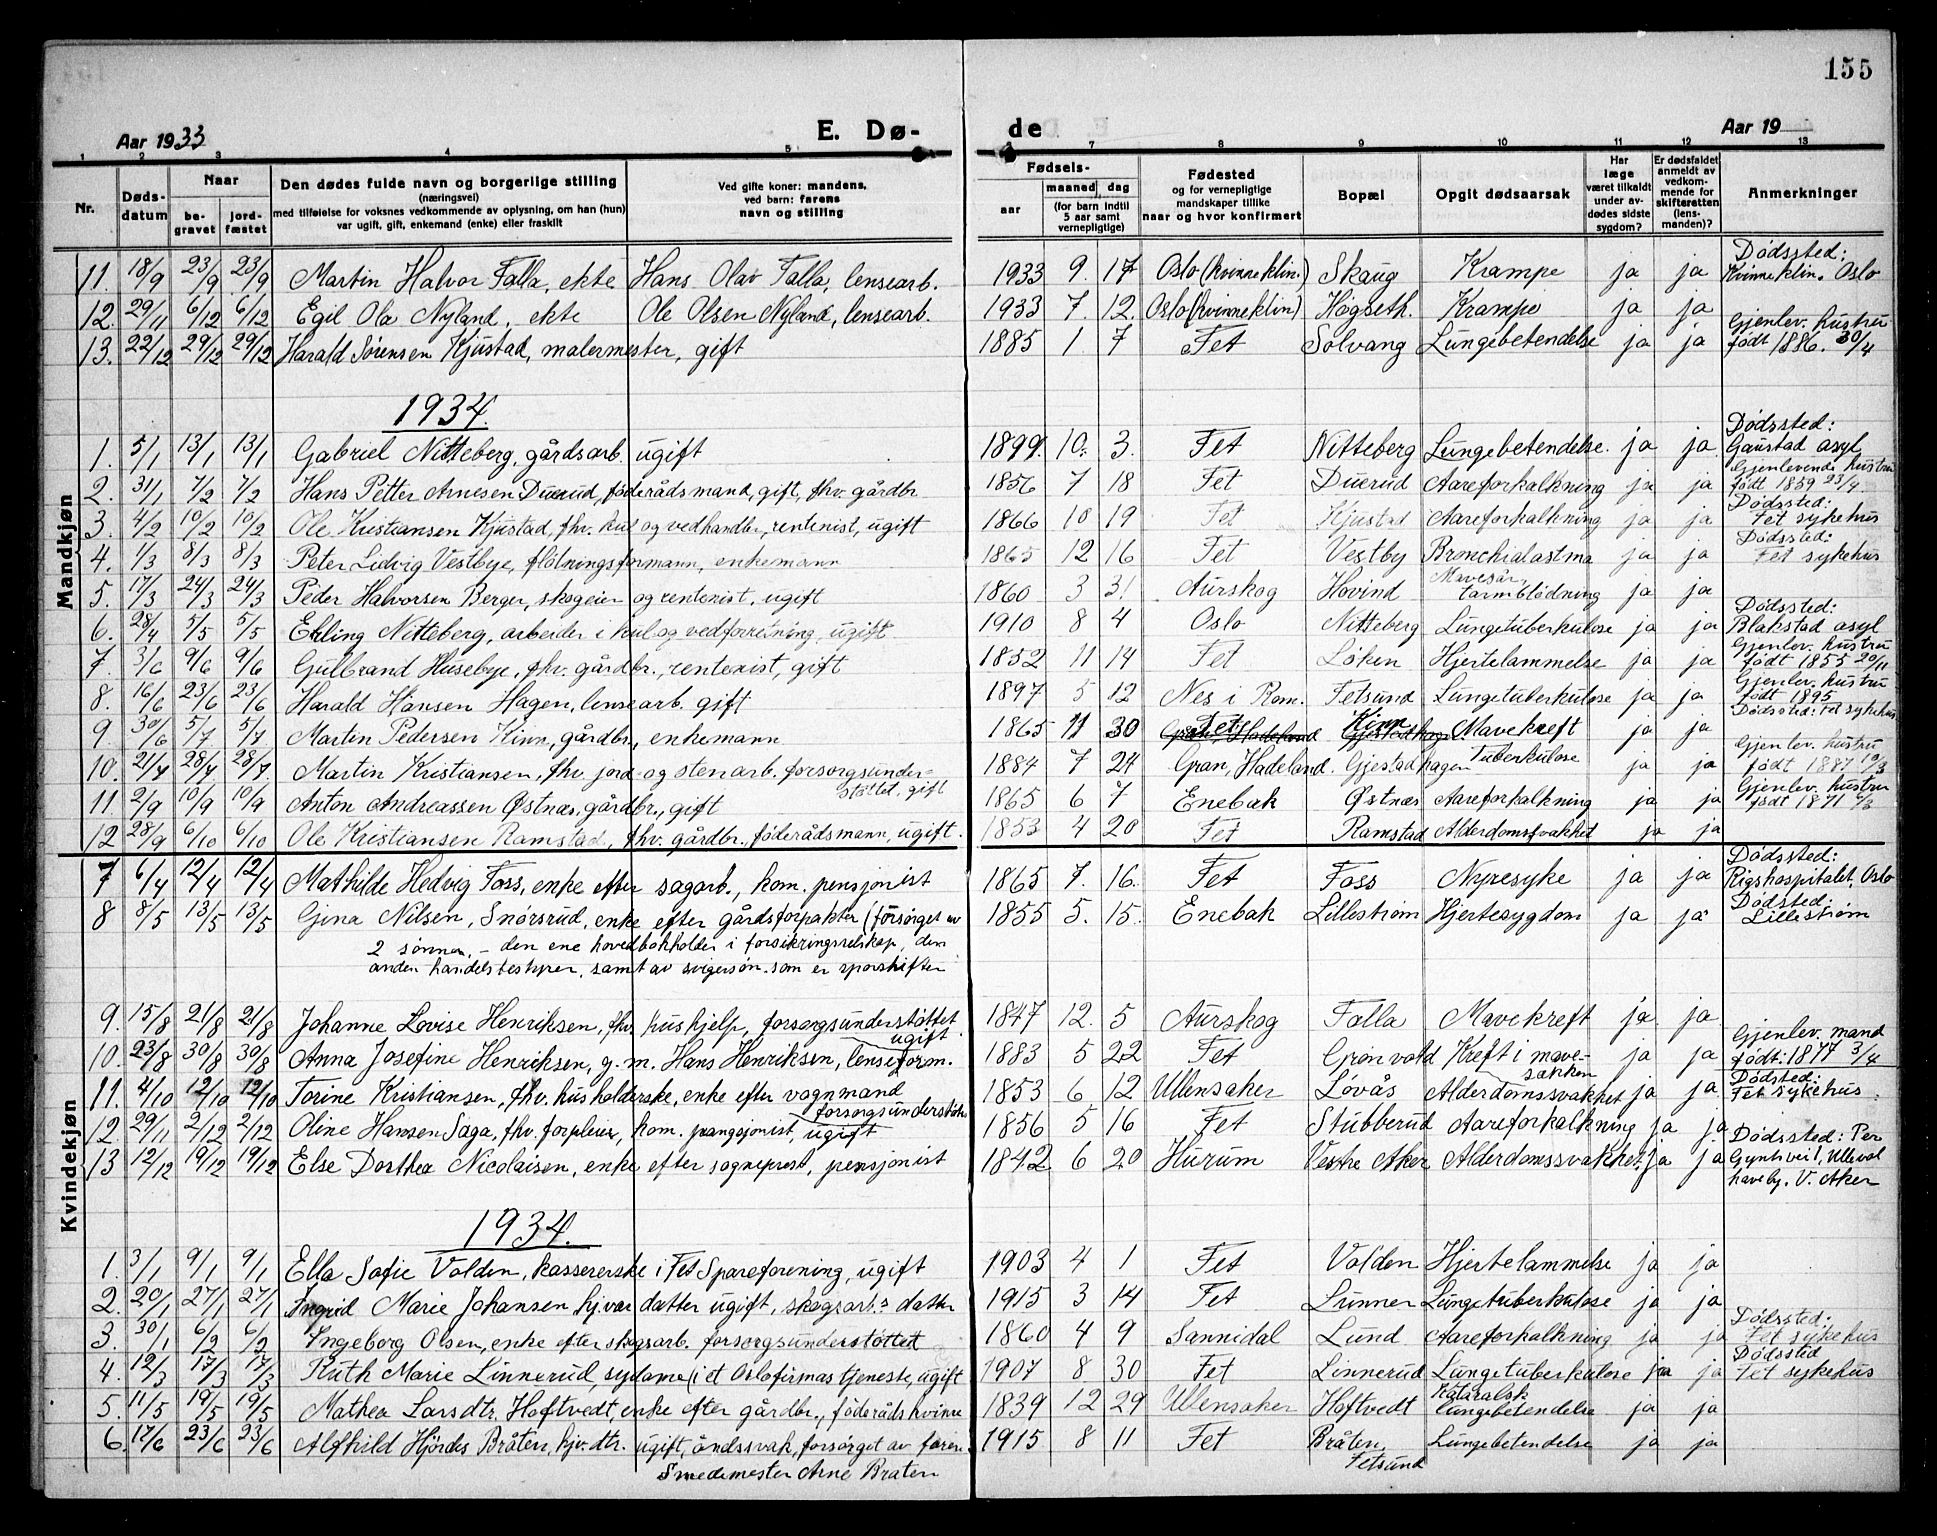 155
Aar 1933 E. Dø- de Aar 19
1 2 3 4 5 6 7 8 9 10 11 12 13
Nr. Døds-datum Naar be-gravet jord-fæstet Den dødes fulde navn og borgerlige stilling (næringsvei) med tilføielse for voksnes vedkommende av oplysning, om han (hun) var ugift, gift, enkemand (enke) eller fraskilt Ved gifte koner: mandens, ved barn: farens navn og stilling Fødsels- aar maaned dag (for barn indtil 5 aar samt vernepligtige) Fødested og for vernepligtige mandskaper tillike naar og hvor konfirmert Bopæl Opgit dødsaarsak Har læge været tilkaldt under av-dødes sidste sygdom? Er dødsfaldet anmeldt av vedkom-mende for skifteretten (lens-manden)? Anmerkninger
Mandkjøn
11. 18/9 23/9 23/9 Martin Halvor Falla, ekte Hans Olav Falla, lensearb. 1933 9. 17 Oslo (kvinneklin.) Skaug Krampe ja ja Dødssted: Kvinneklin. Oslo
12. 29/11 6/12 6/12 Egil Ola Nyland, ekte Ole Olsen Nyland, lensearb. 1933 7. 12. Oslo (kvinneklin) Høgseth. Krampe ja ja
13. 22/12 29/12 29/12 Harald Sørensen Kjustad, malermester, gift 1885 1 7 Fet Solvang Lungebetendelse ja ja Gjenlev. hustru født 1886. 30/4
1934.
1. 5/1 13/1 13/1 Gabriel Nitteberg, gårdsarb. ugift 1899. 10. 3. Fet Nitteberg Lungebetendelse. ja ja Dødssted: Gaustad asyl
2. 31/1 7/2 7/2 Hans Petter Arnesen Duerud, føderådsmand, gift, fhv. gårdbr. 1856 7 18 Fet Duerud Aareforkalkning ja ja Gjenlevende hustru født 1859 23/4.
3. 4/2 10/2 10/2 Ole Kristiansen Kjustad, fhv. kul og vedhandler, rentenist, ugift 1866 10 19 Fet Kjustad Aareforkalkning ja ja Dødssted: Fet sykehus
4. 1/3 8/3 8/3 Peter Ludvig Vestbye, fløtningsformann, enkemann 1865 12 16 Fet Vestby Bronchialastma ja ja Dødssted: Fet sykehus
5. 17/3 24/3 24/3 Peder Halvorsen Berger, skogeier og rentenist, ugift 1860 3 31 Aurskog Hovind Mavesår, tarmblødning ja ja
6. 28/4 5/5 5/5 Erling Nitteberg, arbeider i kul og vedforretning, ugift 1910 8 4 Oslo Nitteberg Lungetuberkulose ja ja Dødssted: Blakstad asyl
7. 3/6 9/6 9/6 Gulbrand Husebye, fhv. gårdbr., rentenist, gift 1852 11 14 Fet Løken Hjertelammelse ja ja Gjenlev. hustru født 1855 20/11
8. 16/6 23/6 23/6 Harald Hansen Hagen, lensearb. gift 1897 5 12 Nes i Rom. Fetsund Lungetuberkulose ja ja Gjenlev. hustru født 1895
9. 30/6 5/7 5/7 Martin Pedersen Kinn, gårdbr., enkemann 1865 11 30 Fet Kinn Mavekreft ja ja Dødssted: Fet sykehus
10. 21/7 28/7 28/7. Martin Kristiansen, fhv. jord- og stenarb. forsorgsunder=støttet, gift 1884 7 24 Gran, Hadeland. Gjestadhagen Tuberkulose ja ja Gjenlev. hustru født 1887 19/3
11 2/9 10/9 10/9 Anton Andreassen Østnæs, gårdbr., gift 1865 6 7 Enebak Østnæs Aareforkalkning ja ja Gjenlev. hustru født 1871 6/3
12 28/9 6/10 6/10 Ole Kristiansen Ramstad, fhv. gårdbr., føderådsmann, ugift. 1853 4 20 Fet Ramstad Alderdomssvakhet ja ja
Kvindekjøn
7 6/4 12/4 12/4 Mathilde Hedvig Foss, enke efter sagarb., kom. pensjonist 1865 7. 16. Fet Foss Nyresyke ja ja Dødssted: Rigshospitalet, Oslo
8 8/5 13/5 13/5 Gina Nilsen, Snørsrud, enke efter gårdsforpakter (forsørget av 1855 5. 15. Enebak Lillestrøm Hjertesygdom ja ja Dødssted: Lillestrøm
2 sønner, – den ene hovedbokholder i forsikringsselskap, den
anden handelsbestyrer, samt av svigersøn. som er sporskifter
9. 15/8 21/8 21/8 Johanne Lovise Henriksen, fhv. hushjelp, forsorgsunderstøttet ugift. 1847 12. 5 Aurskog Falla Mavekreft ja ja
10. 23/8 30/8 30/8 Anna Josefine Henriksen, g. m. Hans Henriksen, lenseform. 1883 5 22 Fet Grønvold Kreft i mave-sækken ja ja Gjenlev. mand født: 1877 3/4
11. 4/10 12/10 12/10 Torine Kristiansen, fhv. husholderske, enke efter vognmand forsorgsunderstøttet 1853 6 12 Ullensaker Løvås Alderdomssvakhet ja ja Dødsted: Fet sykehus.
12. 29/11 2/12 2/12 Oline Hansen Saga, fhv. forpleier, kom. pangsjonist, ugift 1856 5 16 Fet Stubberud Aareforkalkning ja ja
13 12/12 19/12 19/12 Else Dorthea Nicolaisen, enke efter sogneprest, pensjonist 1842 6 20 Hurum Vestre Aker Alderdomssvakhet. ja ja Dødssted: Per Gyntsvei 1, Ulleval haveby. V. Aker
1934.
1. 3/1 9/1 9/1 Ella Sofie Volden, kassererske i Fet Spareforening, ugift 1903 4 1 Fet Volden Hjertelammelse ja ja
2. 20/1 27/1 27/1 Ingrid Marie Johansen, hj.vær datter ugift, skogsarb.s datter 1915 3 14 Fet Lunner Lungetuberkulose ja ja
3. 30/1 6/2 6/2 Ingeborg Olsen, enke efter skogsarb. forsorgsunderstøttet 1860 4 9 Sannidal Lund Aareforkalkning ja ja Dødssted: Fet sykehus
4. 12/3 17/3 17/3 Ruth Marie Linnerud, sydame (i et Oslofirmas tjeneste, ugift 1907 8 30 Fet Linnerud Lungetuberkulose ja ja Dødssted Fet sykehus
5. 11/5 19/5 19/5 Mathea Larsdtr. Hoftvedt, enke efter gårdbr., føderådskvinne 1839 12 29 Ullensaker Hoftvedt Kataralsk lungebetendelse ja ja
6. 17/6 23/6 23/6 Alfhild Hjørdis Bråten, hjv. dtr. ugift, åndssvak, forsørget av faren 1915 8 11 Fet Bråten, Fetsund Lungebetendelse ja ja
Smedemester Arne Bråten